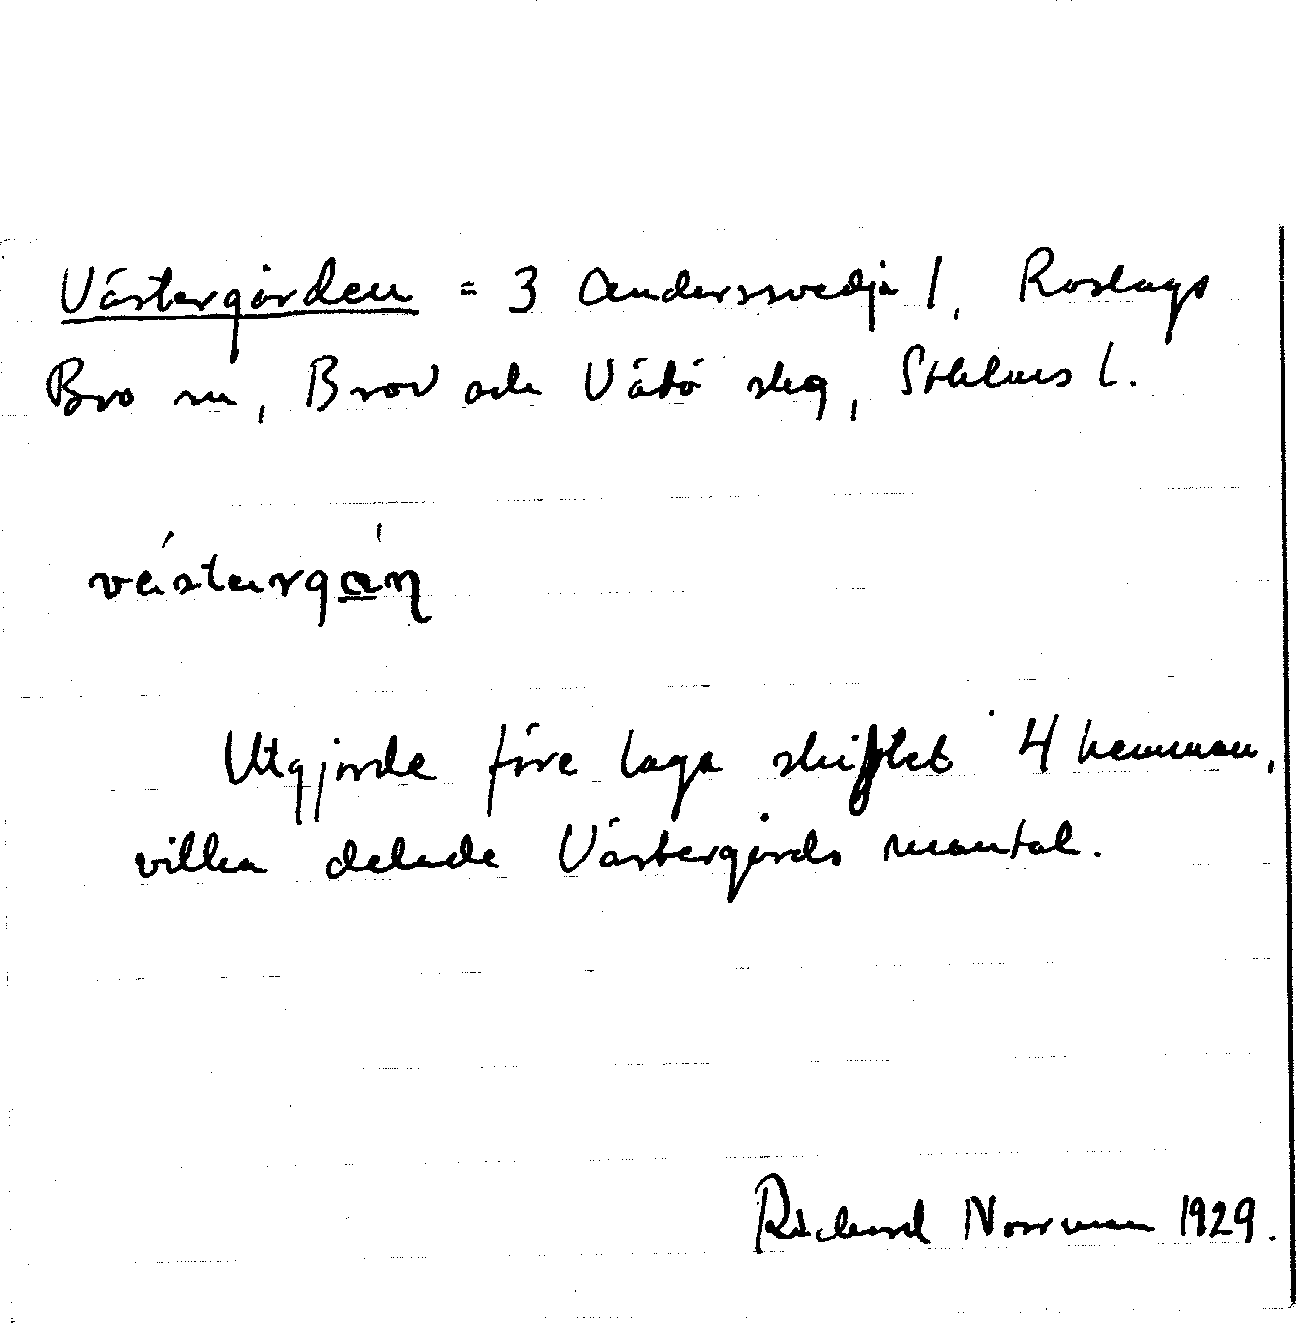 Västergården = 3 Anderssvedja 1, Roslags
Bro sn, Bro och Vätö slg, Sthlms l.
västərgɑ̲n
Utgjorde före laga skiftet 4 hemman,
vilka delade Västergårds mantal.
Richard Norrman 1929.